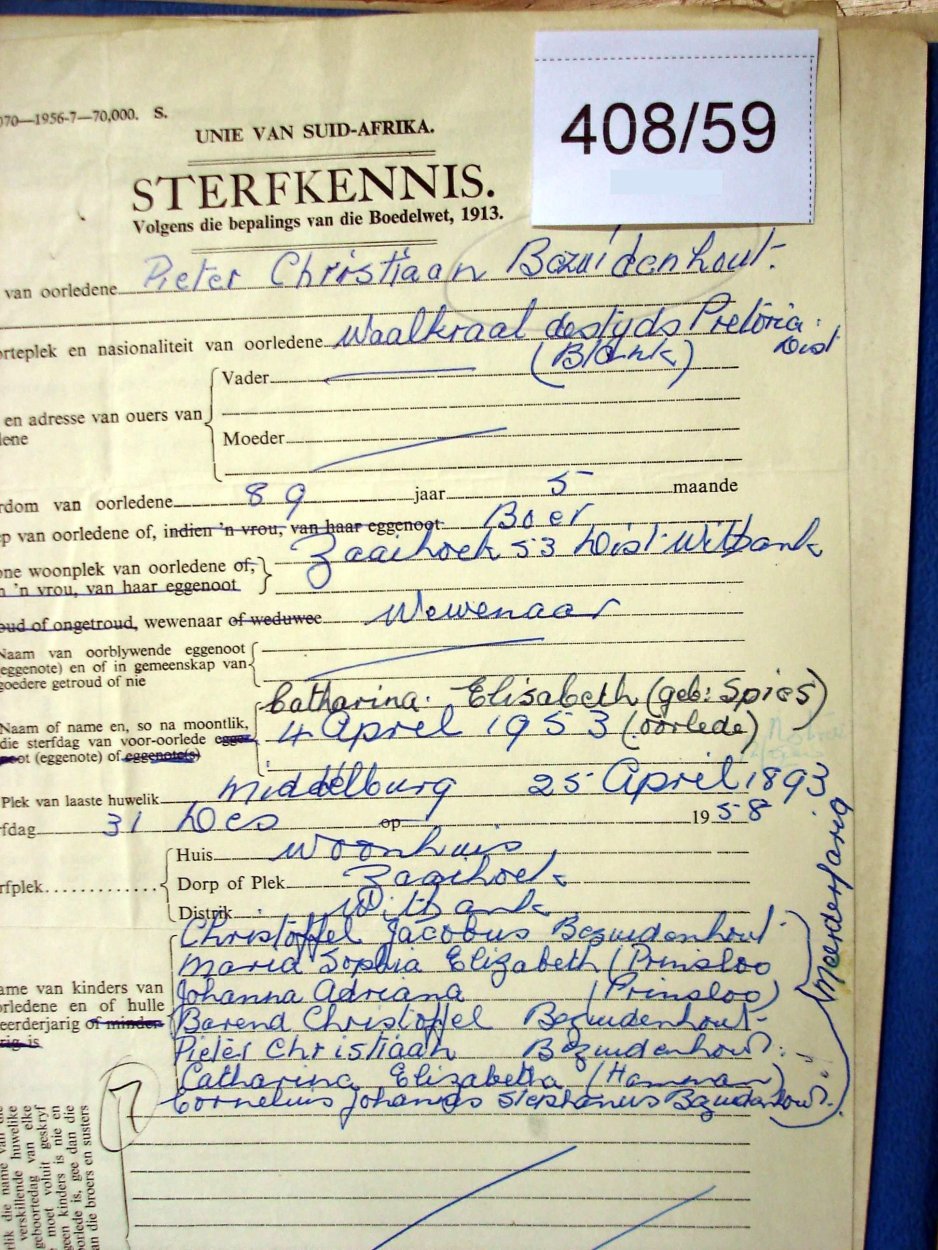 408/59
070—1956-7—70,000. S.
UNIE VAN SUID-AFRIKA.
STERFKENNIS.
Volgens die bepalings van die Boedelwet, 1913.
van oorledene Pieter Christiaan Bezuidenhout.
orteplek en nasionaliteit van oorledene Waalkraal destyds Pretoria.
Dist
(Blank)
Vader
en adresse van ouers van
lene
Moeder
rdom van oorledene 89 jaar 5 maande
ep van oorledene of, indien 'n vrou, van haar eggenoot Boer
one woonplek van oorledene of, Zaaihoek 53 Dist Witbank
n 'n vrou, van haar eggenoot
oud of ongetroud, wewenaar of weduwee Wewenaar
Naam van oorblywende eggenoot
eggenote) en of in gemeenskap van
goedere getroud of nie
Catharina. Elisabeth (geb: Spies)
Naam of name en, so na moontlik,
die sterfdag van voor-oorlede 4 April 1953 (oorlede)
oot (eggenote) of eggenote(s)
Plek van laaste huwelik Middelburg 25 April 1893
rfdag 31 Des op 1958
Huis Woonhuis
rfplek Dorp of Plek Zaaihoek
Distrik Witbank
Christoffel Jacobus Bezuidenhout
Maria Sophia Elizabeth (Prinsloo
ame van kinders van Johanna Adriana (Prinsloo)
orledene en of hulle
eerderjarig of minder- Barend Christoffel Bezuidenhout
rig is Pieter Christiaan Bezuidenhout.
Catharina Elizabetha (Hamman)
Cornelius Johannes Stephanus Bezuidenhout.
Meerderjarig
7
rlik die name van die
verskillende huwelike
geboortedag van elke
moet voluit geskryf
geen kinders is nie en
orlede is, gee dan die
an die broers en susters